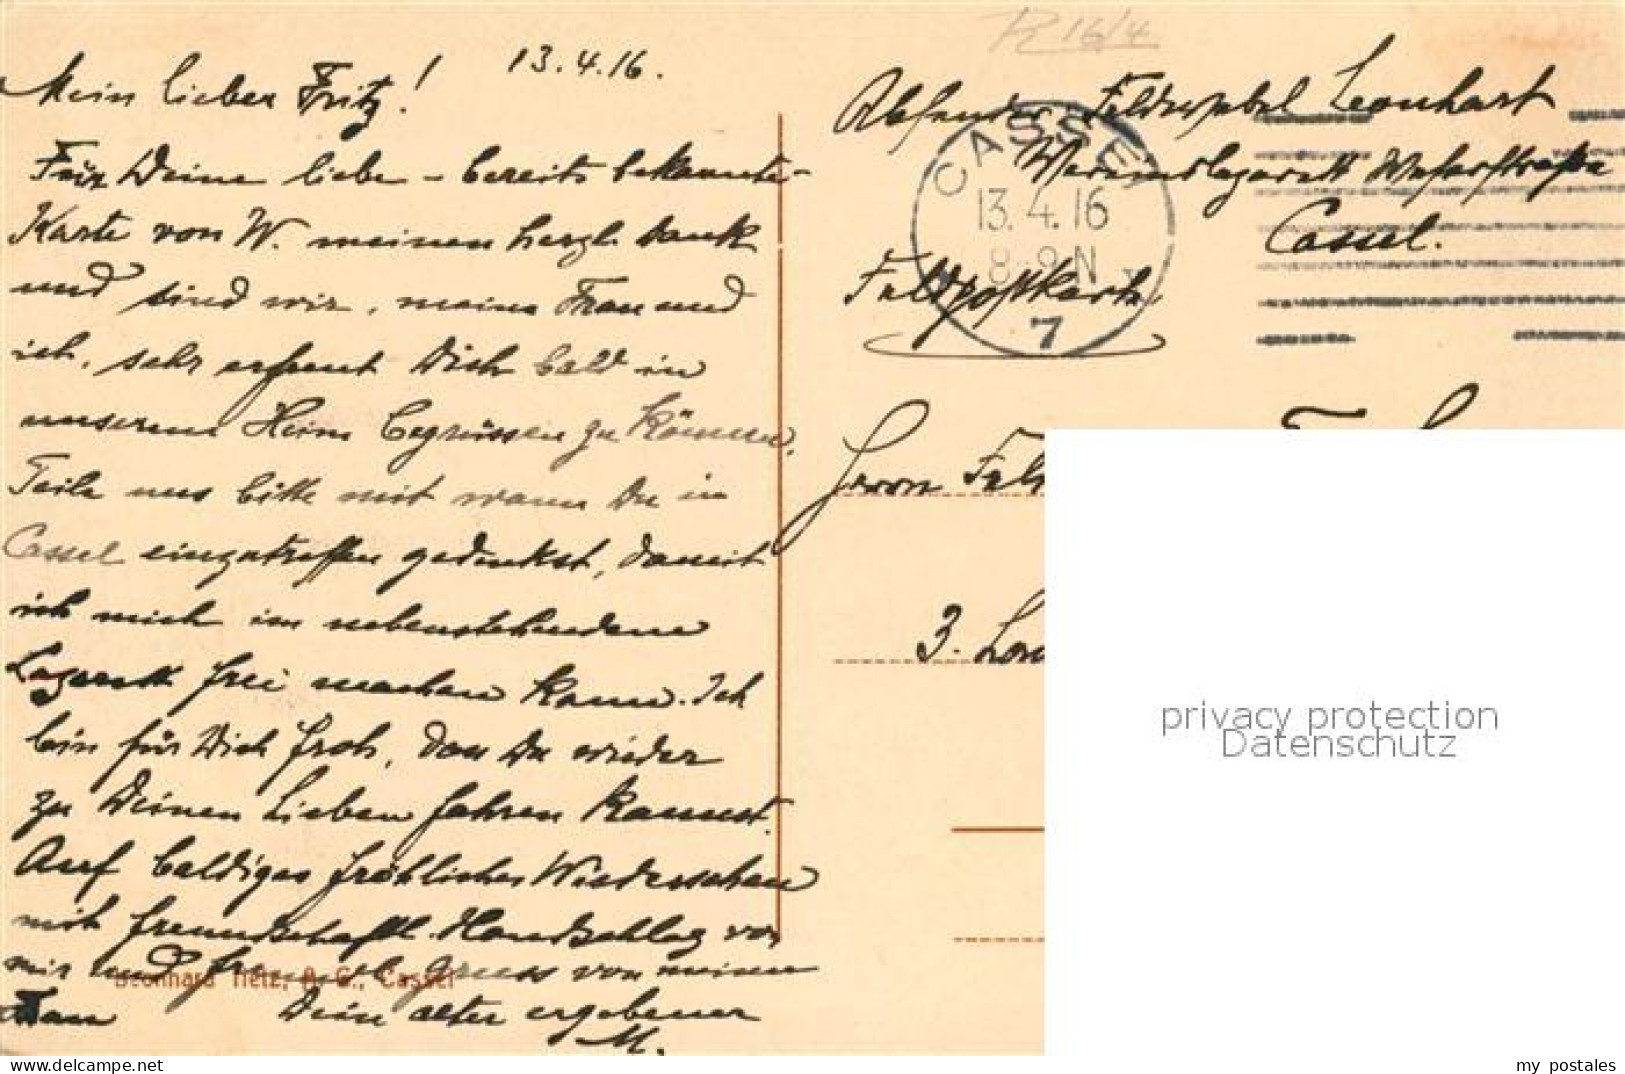 13.4.16.
Mein lieber Fritz!
Für Deine liebe – bereits bekannte –
Karte von W. meinen herzl. Dank
und sind wir, meine Frau und
ich, sehr erfreut Dich bald in
unserem Heim begrüssen zu können.
Teile uns bitte mit wann Du in
Cassel einzutreffen gedenkst, damit
ich mich im nebenstehenden
Lazarett frei machen kann. Ich
bin für Dich froh, das Du wieder
zu Deinen Lieben fahren kannst.
Auf baldiges fröhliches Wiedersehen
mit freundschaftl. Handschlag von
mir und freundl. Gruss von meiner
Frau Dein alter ergebener
M.
Leonhard Tietz, A. G., Cassel
R 16/4
Absender Feldwebel Leonhart
Vereinslazarett Weserstraße
Cassel.
Feldpostkarte
CASSEL
13.4.16
8-9N
7
Herrn Feld
3.
privacy protection
Datenschutz
my postales